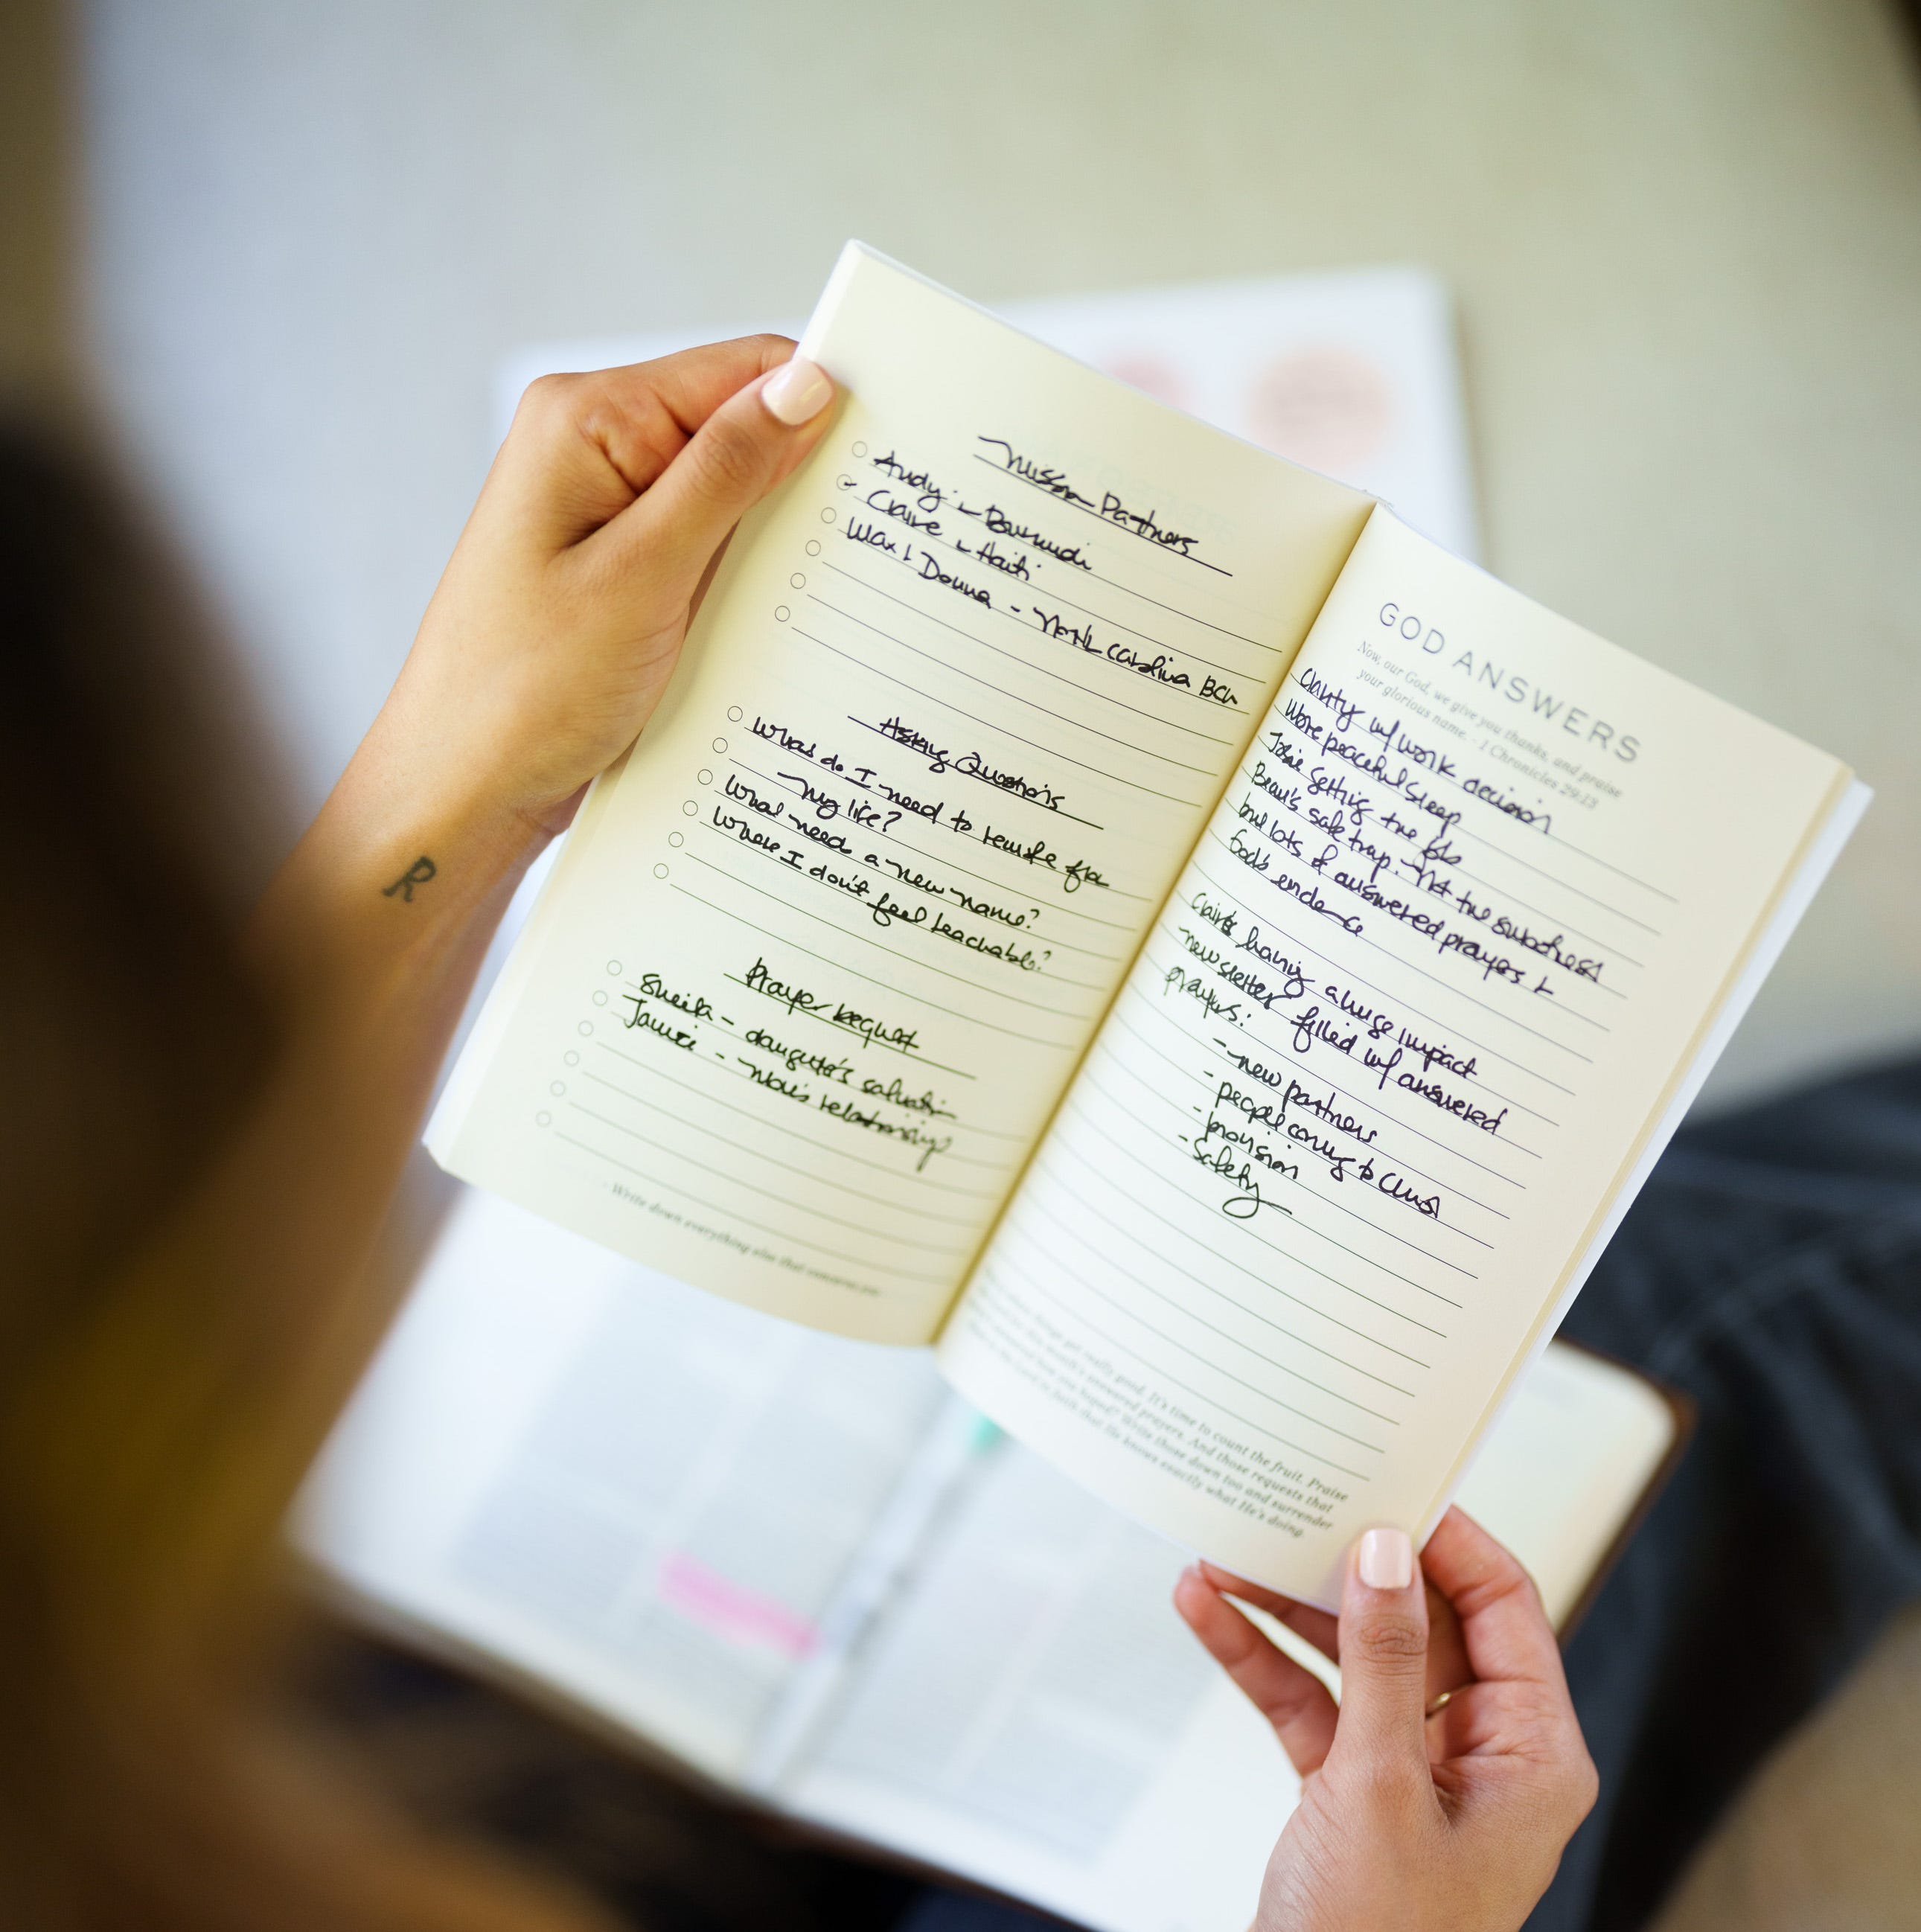 Mission Partners
Andy - Burundi
Claire - Haiti
Max & Donna - North Carolina BCH
Asking Questions
What do I need to remove from
my life?
What needs a new name?
Where I don't feel teachable?
Prayer Request
Sheila - daughter's salvation
Jamie - relationship
- Write down everything else that concerns you
GOD ANSWERS
Now, our God, we give you thanks, and praise
your glorious name. - 1 Chronicles 29:13
Clarity w/ work decision
More peaceful sleep
Josie getting the job
Beau's safe trip. Not the smoothest
but lots of answered prayers &
God's evidence
Claire having a huge impact
newsletter filled w/ answered
prayers:
- new partners
- people coming to Christ
- provision
- Safety
things get really good. It's time to count the fruit. Praise
month's answered prayers. And those requests that
how you hoped? Write those down too and surrender
to faith that He knows exactly what He's doing.
R